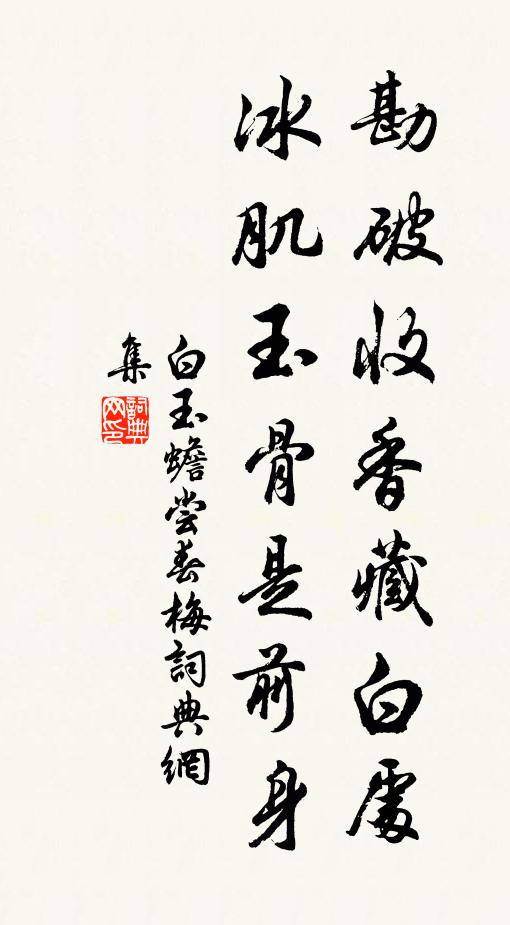 勘破收香藏白處
冰肌玉骨是前身
白玉蟾嘗春梅詞典網
集
詞典網印